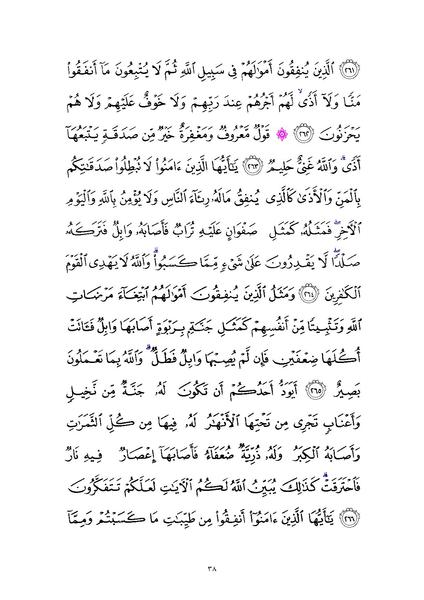 ﴿٢٦١﴾ ٱلَّذِينَ يُنفِقُونَ أَمْوَٰلَهُمْ فِى سَبِيلِ ٱللَّهِ ثُمَّ لَا يُتْبِعُونَ مَآ أَنفَقُوا۟
مَنًّا وَلَآ أَذًى ۙ لَّهُمْ أَجْرُهُمْ عِندَ رَبِّهِمْ وَلَا خَوْفٌ عَلَيْهِمْ وَلَا هُمْ
يَحْزَنُونَ ﴿٢٦٢﴾ ۞ قَوْلٌ مَّعْرُوفٌ وَمَغْفِرَةٌ خَيْرٌ مِّن صَدَقَةٍ يَتْبَعُهَآ
أَذًى ۗ وَٱللَّهُ غَنِىٌّ حَلِيمٌ ﴿٢٦٣﴾ يَٰٓأَيُّهَا ٱلَّذِينَ ءَامَنُوا۟ لَا تُبْطِلُوا۟ صَدَقَٰتِكُم
بِٱلْمَنِّ وَٱلْأَذَىٰ كَٱلَّذِى يُنفِقُ مَالَهُۥ رِئَآءَ ٱلنَّاسِ وَلَا يُؤْمِنُ بِٱللَّهِ وَٱلْيَوْمِ
ٱلْءَاخِرِ ۖ فَمَثَلُهُۥ كَمَثَلِ صَفْوَانٍ عَلَيْهِ تُرَابٌ فَأَصَابَهُۥ وَابِلٌ فَتَرَكَهُۥ
صَلْدًا ۖ لَّا يَقْدِرُونَ عَلَىٰ شَىْءٍ مِّمَّا كَسَبُوا۟ ۗ وَٱللَّهُ لَا يَهْدِى ٱلْقَوْمَ
ٱلْكَٰفِرِينَ ﴿٢٦٤﴾ وَمَثَلُ ٱلَّذِينَ يُنفِقُونَ أَمْوَٰلَهُمُ ٱبْتِغَآءَ مَرْضَاتِ
ٱللَّهِ وَتَثْبِيتًا مِّنْ أَنفُسِهِمْ كَمَثَلِ جَنَّةٍۭ بِرَبْوَةٍ أَصَابَهَا وَابِلٌ فَـَٔاتَتْ
أُكُلَهَا ضِعْفَيْنِ فَإِن لَّمْ يُصِبْهَا وَابِلٌ فَطَلٌّ ۗ وَٱللَّهُ بِمَا تَعْمَلُونَ
بَصِيرٌ ﴿٢٦٥﴾ أَيَوَدُّ أَحَدُكُمْ أَن تَكُونَ لَهُۥ جَنَّةٌ مِّن نَّخِيلٍ
وَأَعْنَابٍ تَجْرِى مِن تَحْتِهَا ٱلْأَنْهَٰرُ لَهُۥ فِيهَا مِن كُلِّ ٱلثَّمَرَٰتِ
وَأَصَابَهُ ٱلْكِبَرُ وَلَهُۥ ذُرِّيَّةٌ ضُعَفَآءُ فَأَصَابَهَآ إِعْصَارٌ فِيهِ نَارٌ
فَٱحْتَرَقَتْ ۗ كَذَٰلِكَ يُبَيِّنُ ٱللَّهُ لَكُمُ ٱلْءَايَٰتِ لَعَلَّكُمْ تَتَفَكَّرُونَ
﴿٢٦٦﴾ يَٰٓأَيُّهَا ٱلَّذِينَ ءَامَنُوٓا۟ أَنفِقُوا۟ مِن طَيِّبَٰتِ مَا كَسَبْتُمْ وَمِمَّآ
٣٨